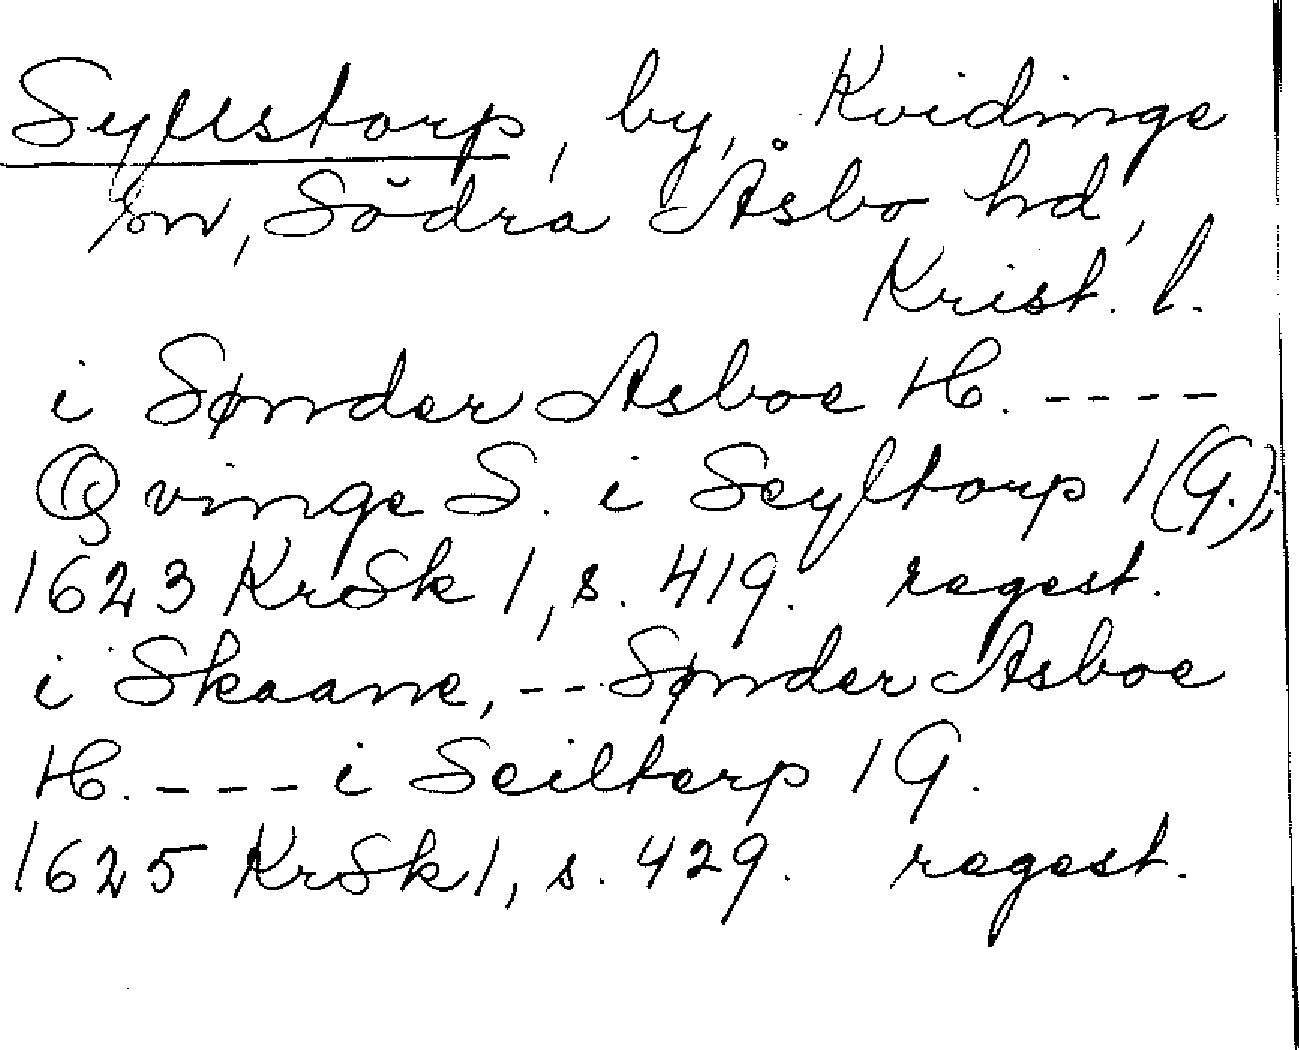 Syllstorp, by, Kvidinge
sn, Södra Åsbo hd,
Krist. l.
i Sønder Asboe H. ----
Qvinge S. i Seyltorp 1 (G.);
1623 KrSk 1, s. 419. regest.
i Skaane, -- Sønder Asboe
H. ---- i Seilterp 1 G.
1625 KrSk 1, s. 429. regest.